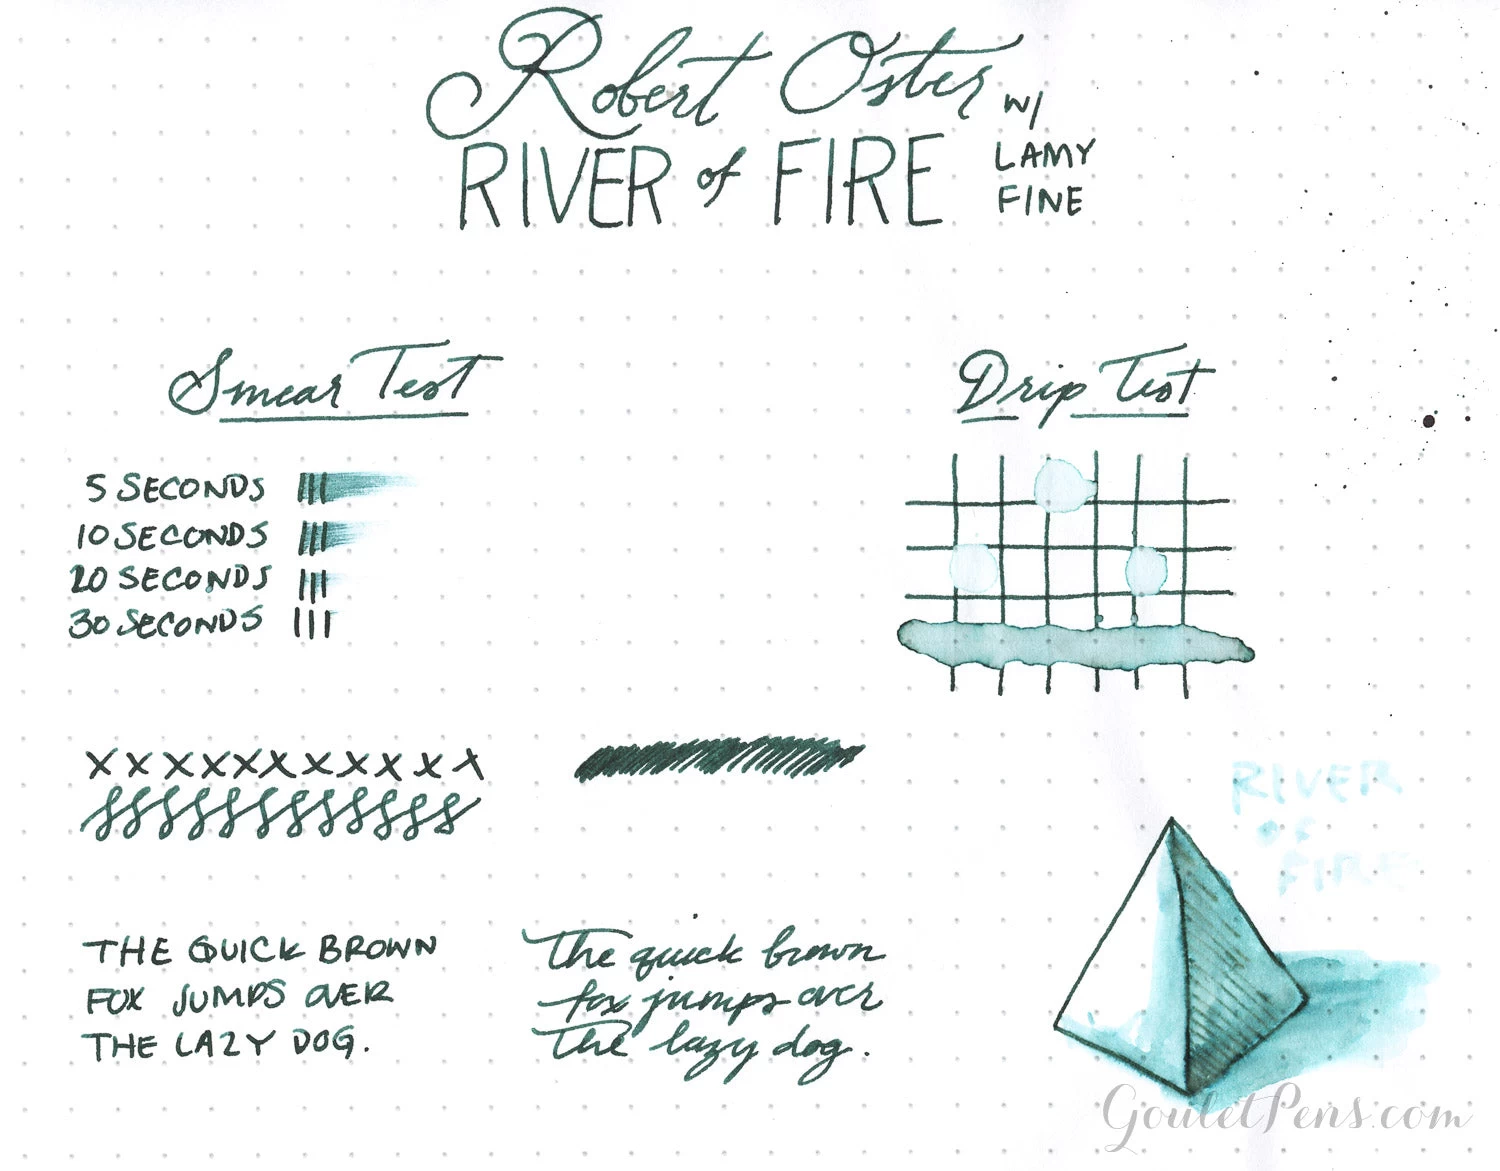 Robert Oster
RIVER of FIRE
w/
LAMY
FINE
Smear Test
5 SECONDS
10 SECONDS
20 SECONDS
30 SECONDS
Drip Test
x x x x x x x x x x x x
RIVER
of
FIRE
THE QUICK BROWN
FOX JUMPS OVER
THE LAZY DOG.
the quick brown
fox jumps over
the lazy dog.
GouletPens.com